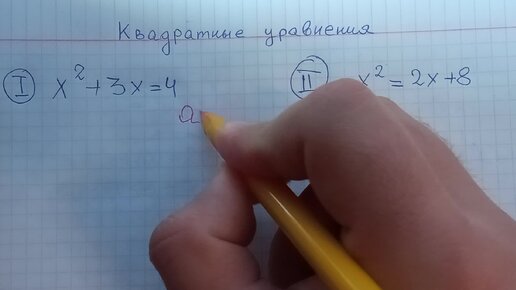 Квадратные уравнения
I x² + 3x = 4
II x² = 2x + 8
a